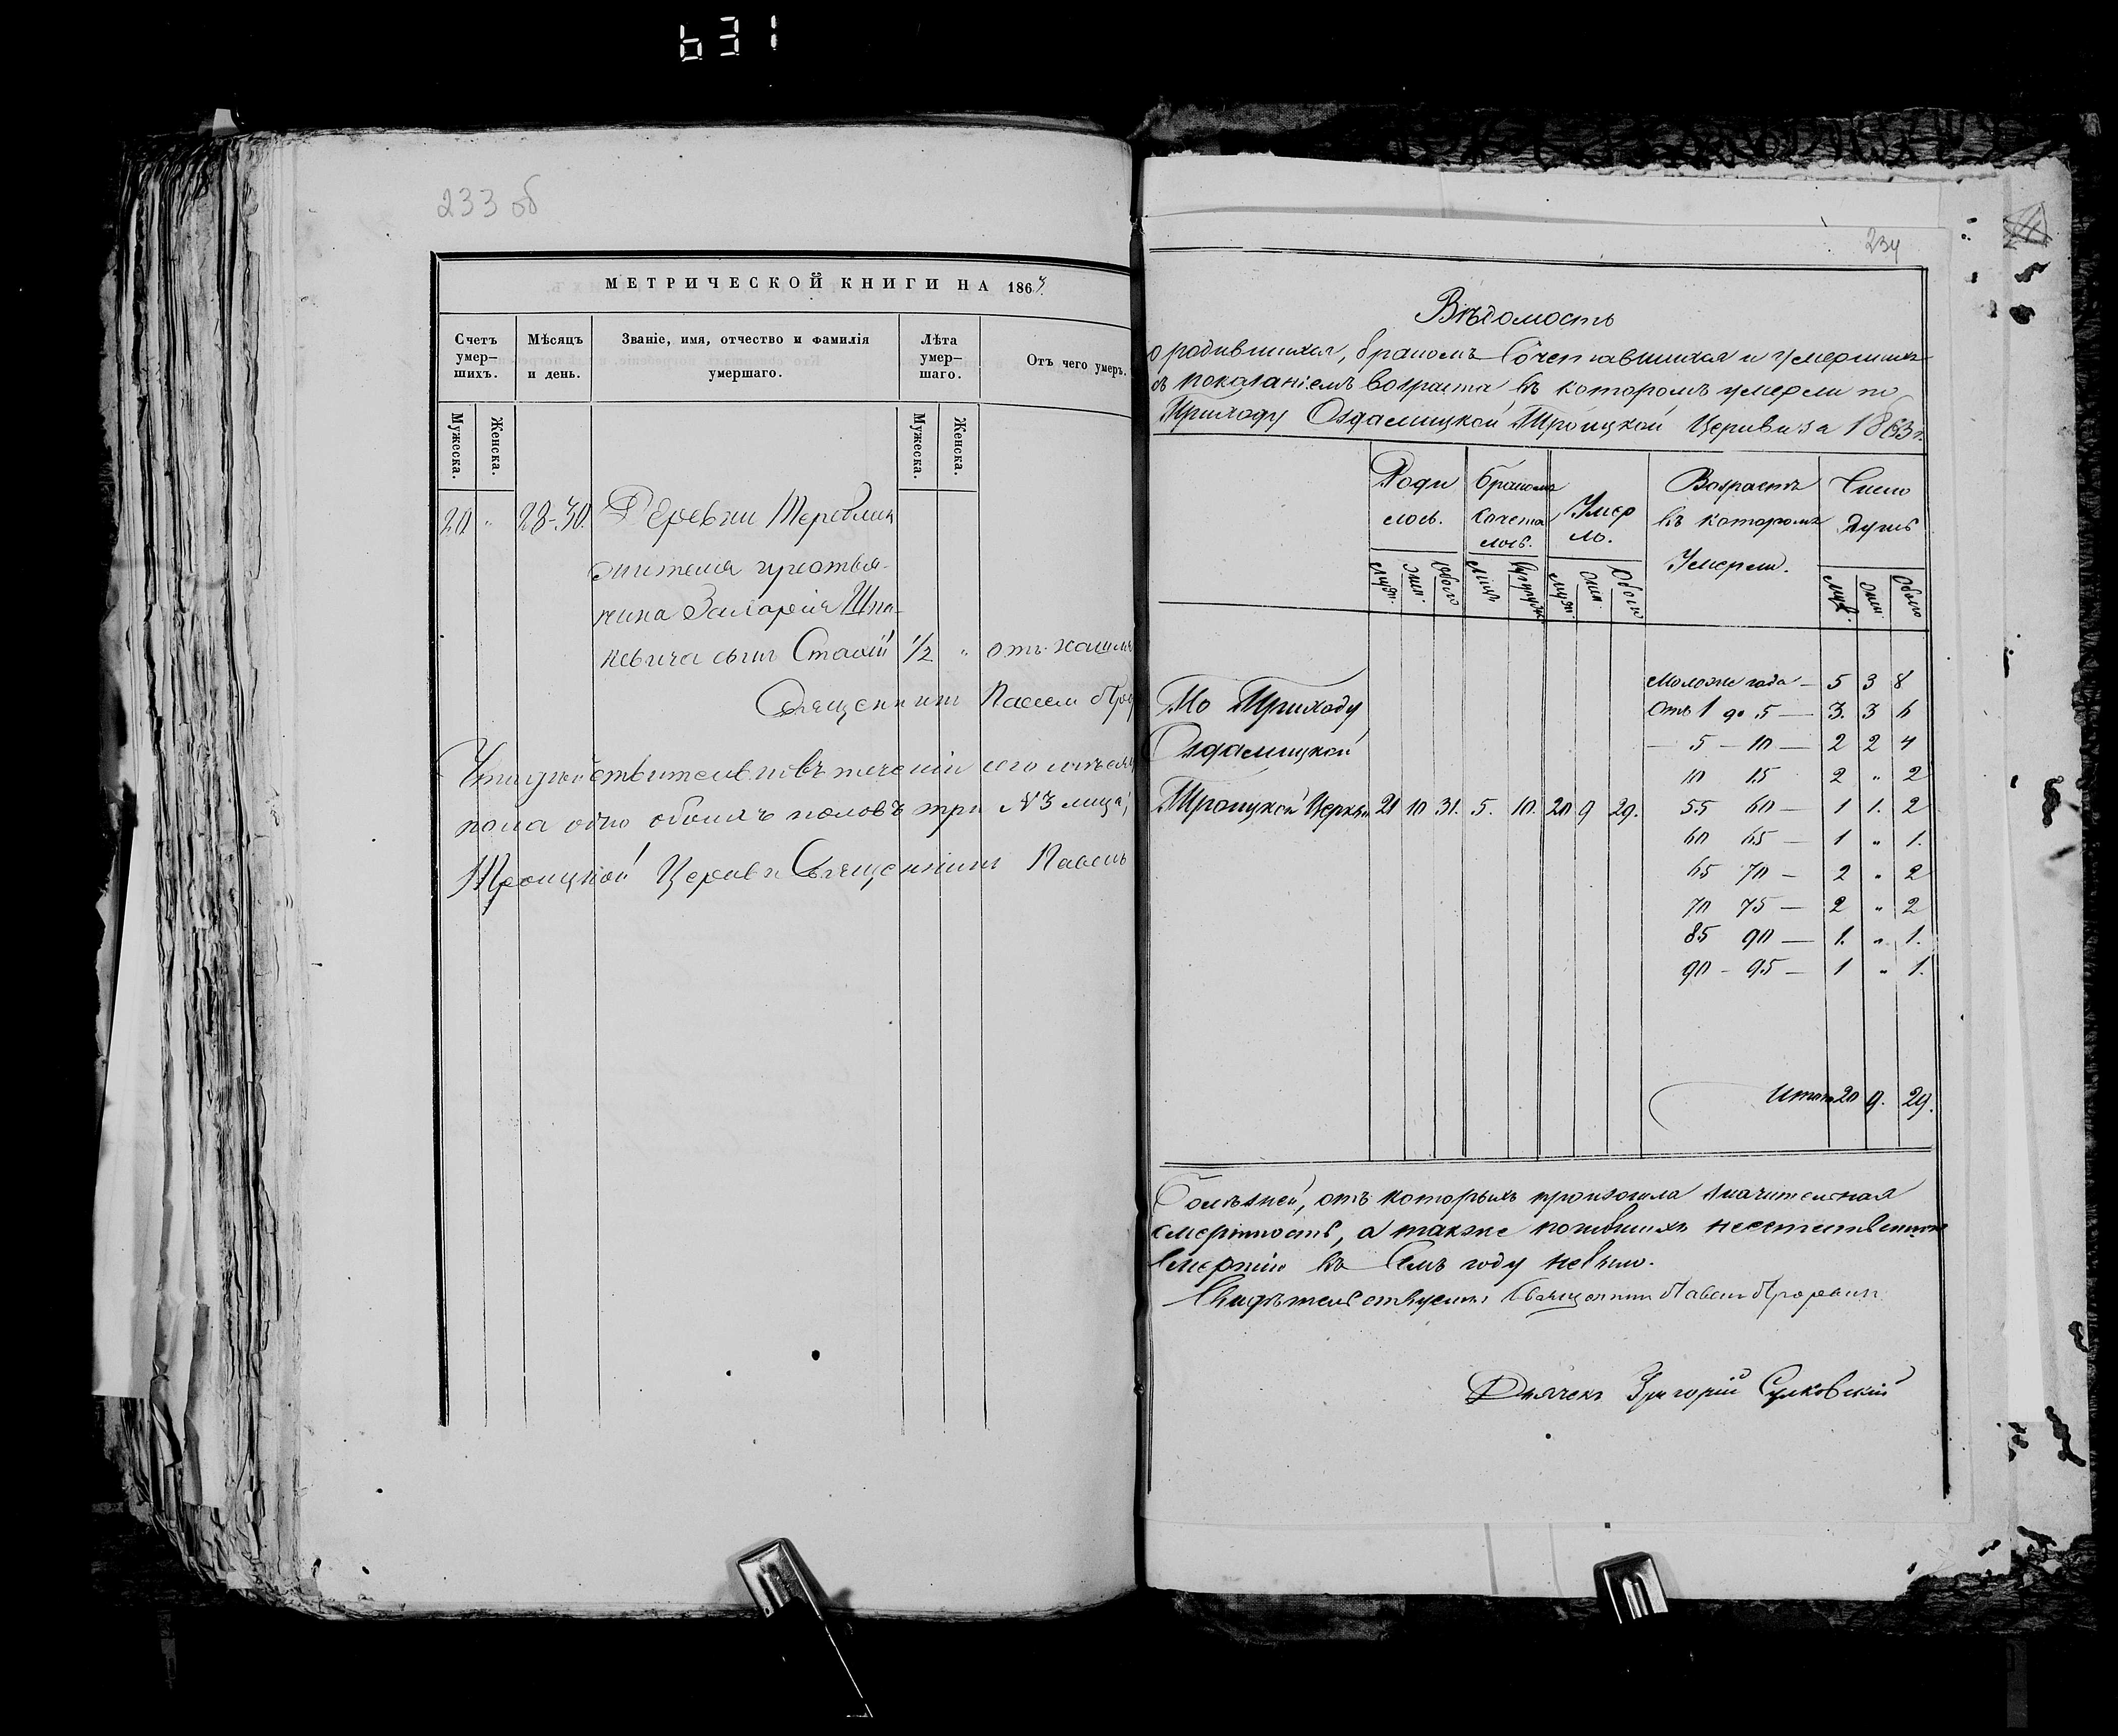 631
233 об
МЕТРИЧЕСКОЙ КНИГИ НА 1863
Счетъ умер-шихъ.
Мѣсяцъ и день.
Званіе, имя, отчество и фамилія умершаго.
Лѣта умер-шаго.
Отъ чего умеръ.
Мужеска.
Женска.
Мужеска.
Женска.
20 " 28-30. Деревни Теребличъ
жителя крестья-
нина Захарія Шпа-
кевича сынъ 1/2 " отъ кашля
Священникъ Павелъ
пола одно обоихъ половъ три № 3 лица;
Троицкой Церкви Священникъ Павелъ
234
Вѣдомость
о родившихся, бракомъ Сочетавшихся и умершихъ
съ показаніемъ возраста въ которомъ умерли по
Приходу Оздамицкой Троицкой Церкви за 1863 г.
Роди лось.
Бракомъ сочета лось.
Умер ло.
Возрастъ въ которомъ Умерли.
Число душъ
муж. жен. Обоего
муж. жен. Обоего
муж. жен. Обоего
Моложе года — 5 3 8
По Приходу
Отъ 1 до 5 — 3. 3 6
Оздамицкой
— 5 — 10 — 2 2 4
10 15 2 " 2
Троицкой Церкви 21 10 31. 5. 10. 20 9 29. 55 60 — 1 1. 2
60 65 — 1 " 1.
65 70 — 2 " 2
70 75 — 2 " 2
85 90 — 1. " 1.
90 — 95 — 1 " 1.
Итого 20 9. 29.
Болѣзней, отъ которыхъ произошла значительная
смертность, а также погибшихъ неестественною
Смертію въ Семъ году небыло.
Священникъ Павелъ
Дьячекъ Григорій Сулковскій